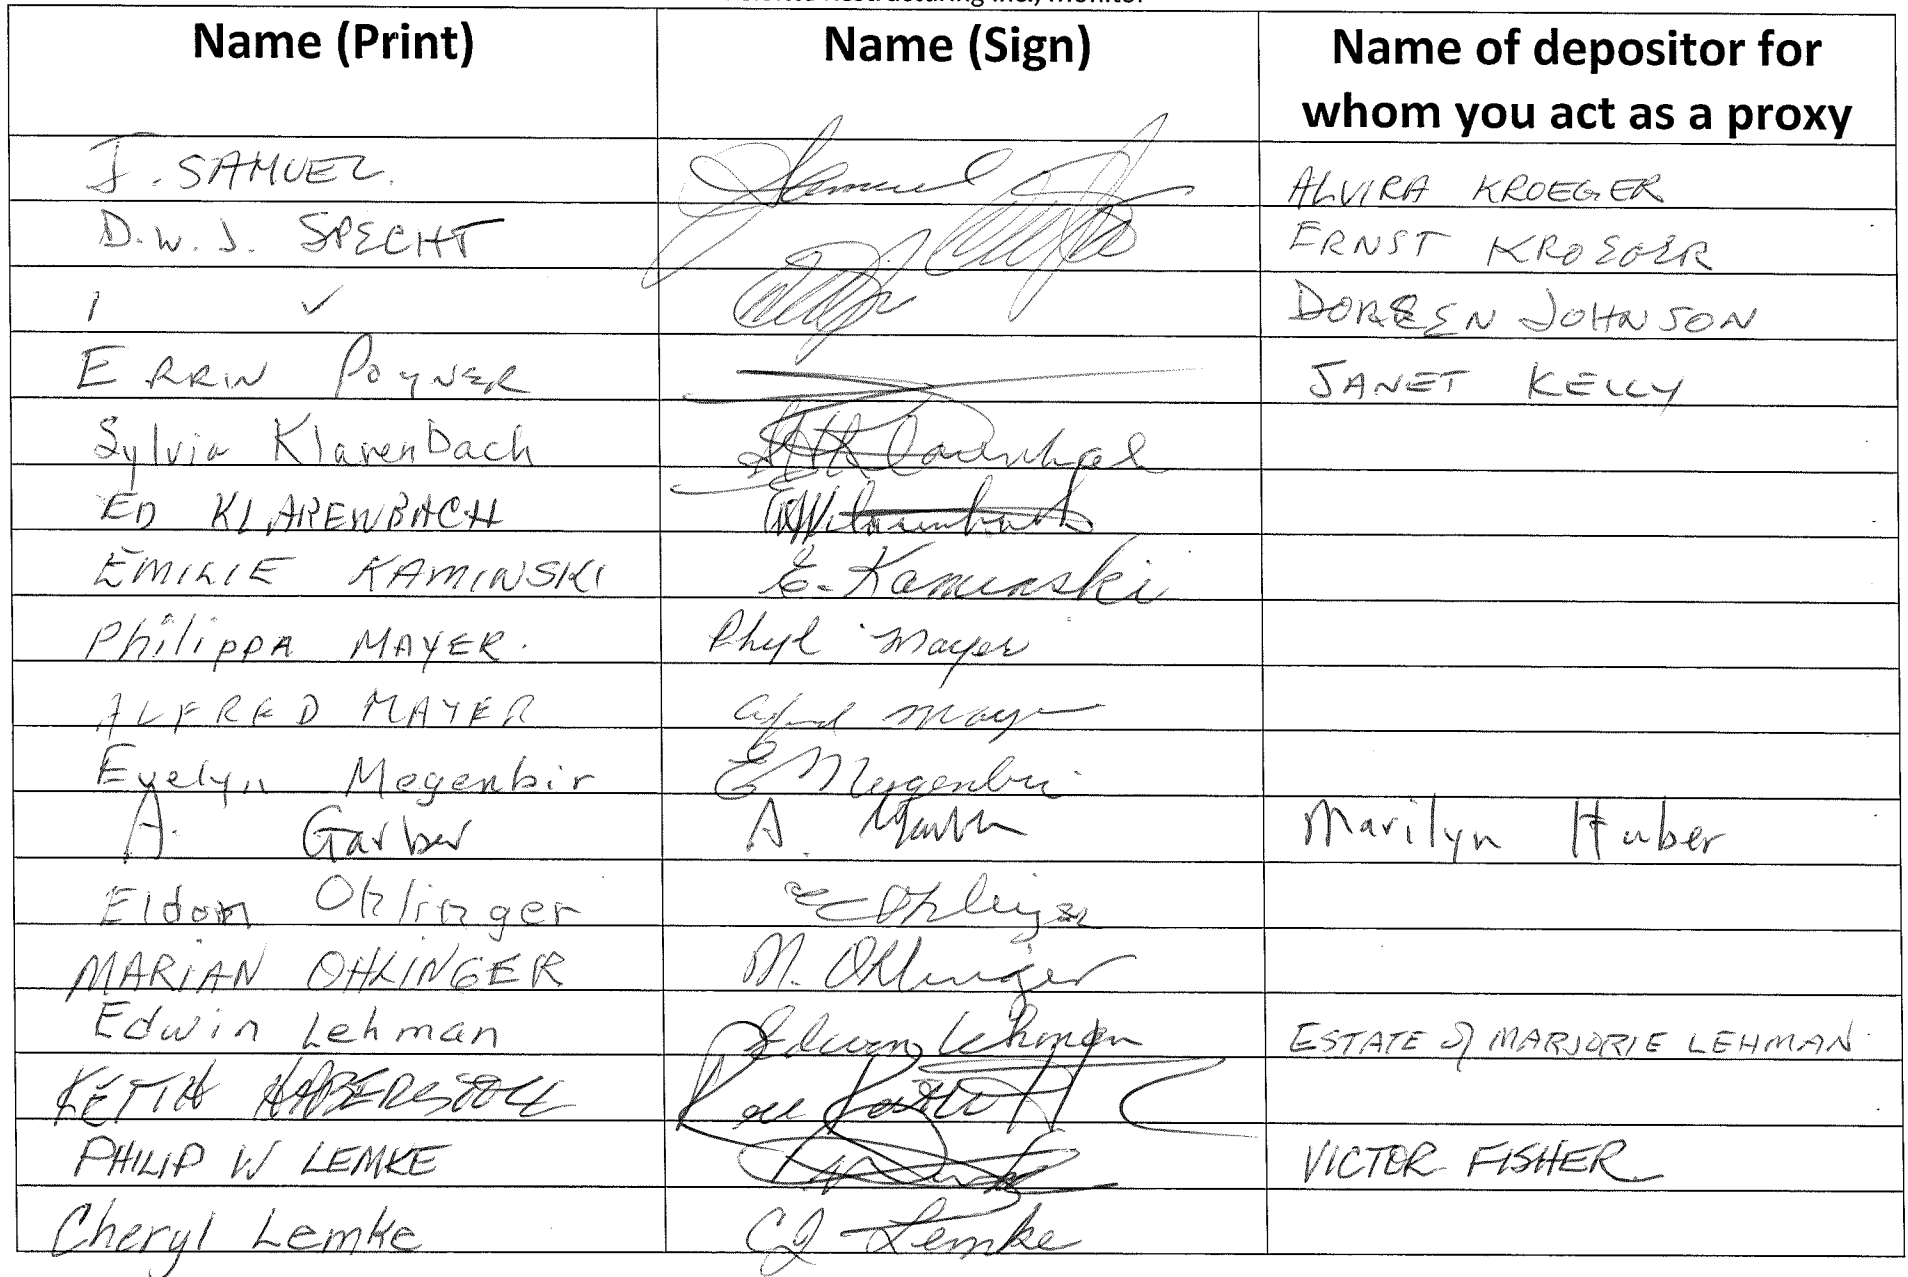 Restructuring Inc., Monitor
Name (Print) Name (Sign) Name of depositor for
whom you act as a proxy
J. SAMUEL. Samuel ALVIRA KROEGER
D.W.J. SPECHT ERNST KROEGER
1 ✓ DOREEN JOHNSON
ERRIN POYNER JANET KELLY
Sylvia KlarenBach
ED KLARENBACH
EMILIE KAMINSKI E. Kaminski
Philippa MAYER. Phyl Mayer
ALFRED MAYER Alfred Mayer
Evelyn Megenbir E Megenbir
A. Garber A. Garber Marilyn Huber
Eldon Ohlinger E Ohlinger
MARIAN OHLINGER M. Ohlinger
Edwin Lehman Edwin Lehman ESTATE of MARJORIE LEHMAN
KEITH HABERSTOCK
PHILIP W LEMKE VICTOR FISHER
Cheryl Lemke CJ Lemke